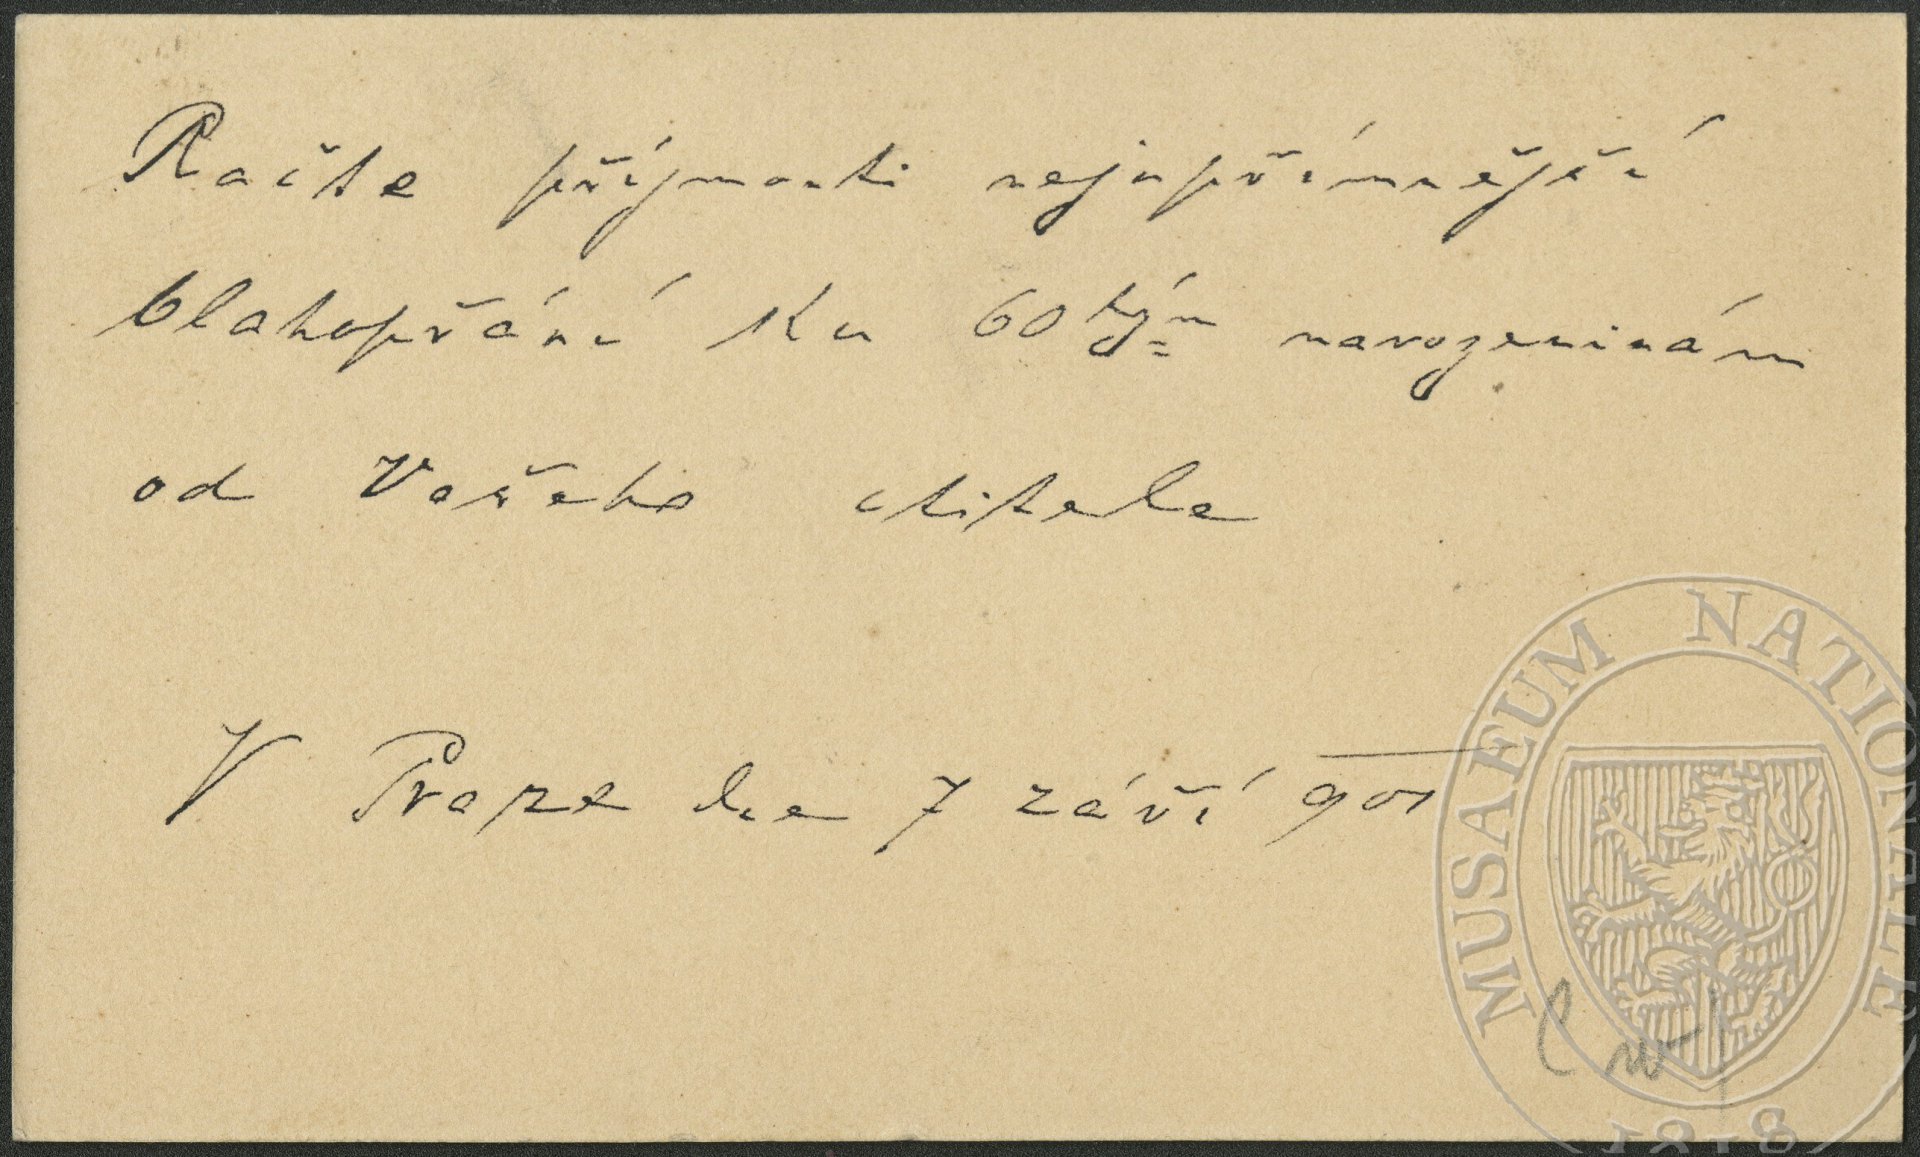 Račte přijmouti nejupřímnější
blahopřání ku 60tým narozeninám
od Vašeho ctitele
V Praze dne 7 září 901
MUSAEUM NATIONALE
1818